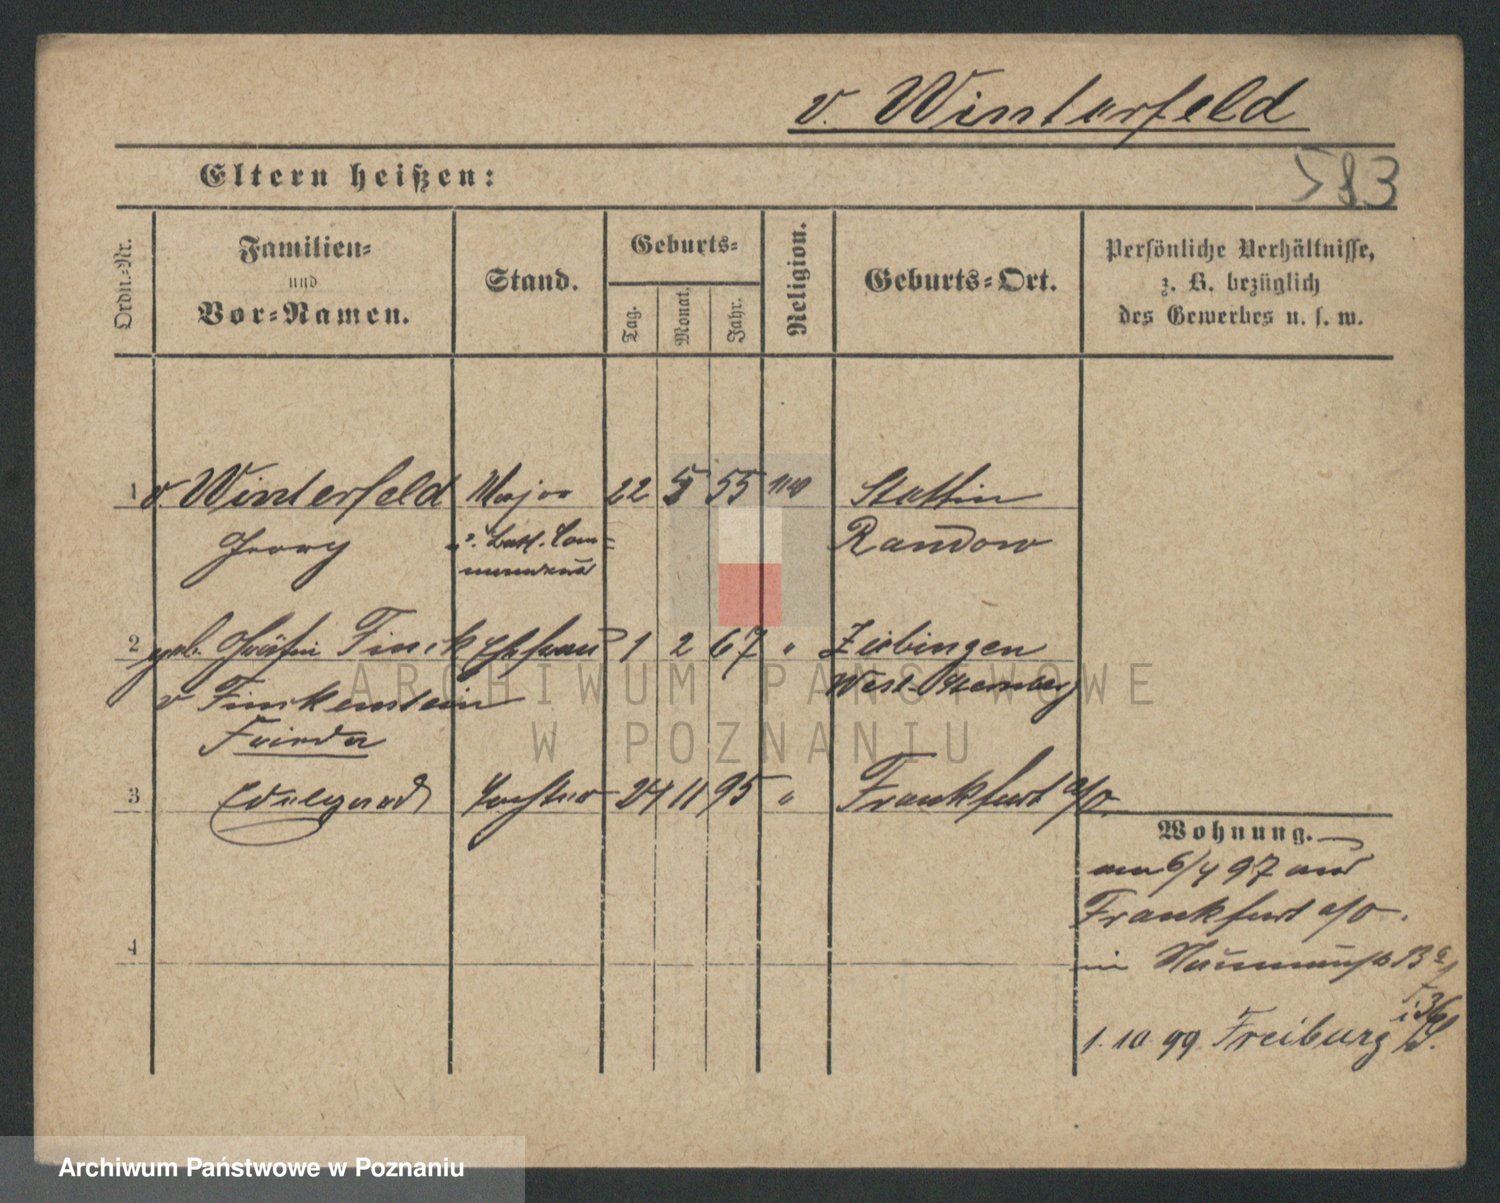 v. Winterfeld
583
Eltern heißen:
Ordn.-Nr.
Familien-
und
Vor-Namen.
Stand.
Geburts-
Tag.
Monat.
Jahr.
Religion.
Geburts-Ort.
Persönliche Verhältnisse,
z. B. bezüglich
des Gewerbes u. s. w.
1 v. Winterfeld Major 22 5 55 Stettin
Georg u. Batl. Com= Randow
mandeur
2 geb. Gräfin Finck Ehefrau 1 2 67 " Ziebingen
v Finkenstein West-Sternberg
Frieda
3 Edelgard Tochter 24 11 95 " Frankfurt a/O.
Wohnung.
am 6/4 97 aus
Frankfurt a/O.
in
4
1. 10 99 Freiburg i/S.
ARCHIWUM PAŃSTWOWE
W POZNANIU
Archiwum Państwowe w Poznaniu